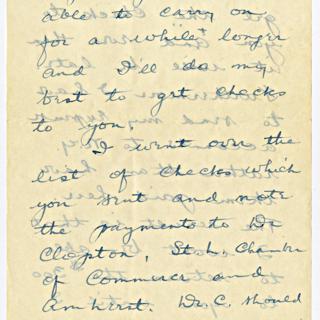 able to carry on
for a while longer
and I'll do my
best to get checks
to you.
I went over the
list of checks which
you sent and note
the payments to Dr
Clopton, St. L. Chamber
of Commerce and
Amherst. Dr. C. should